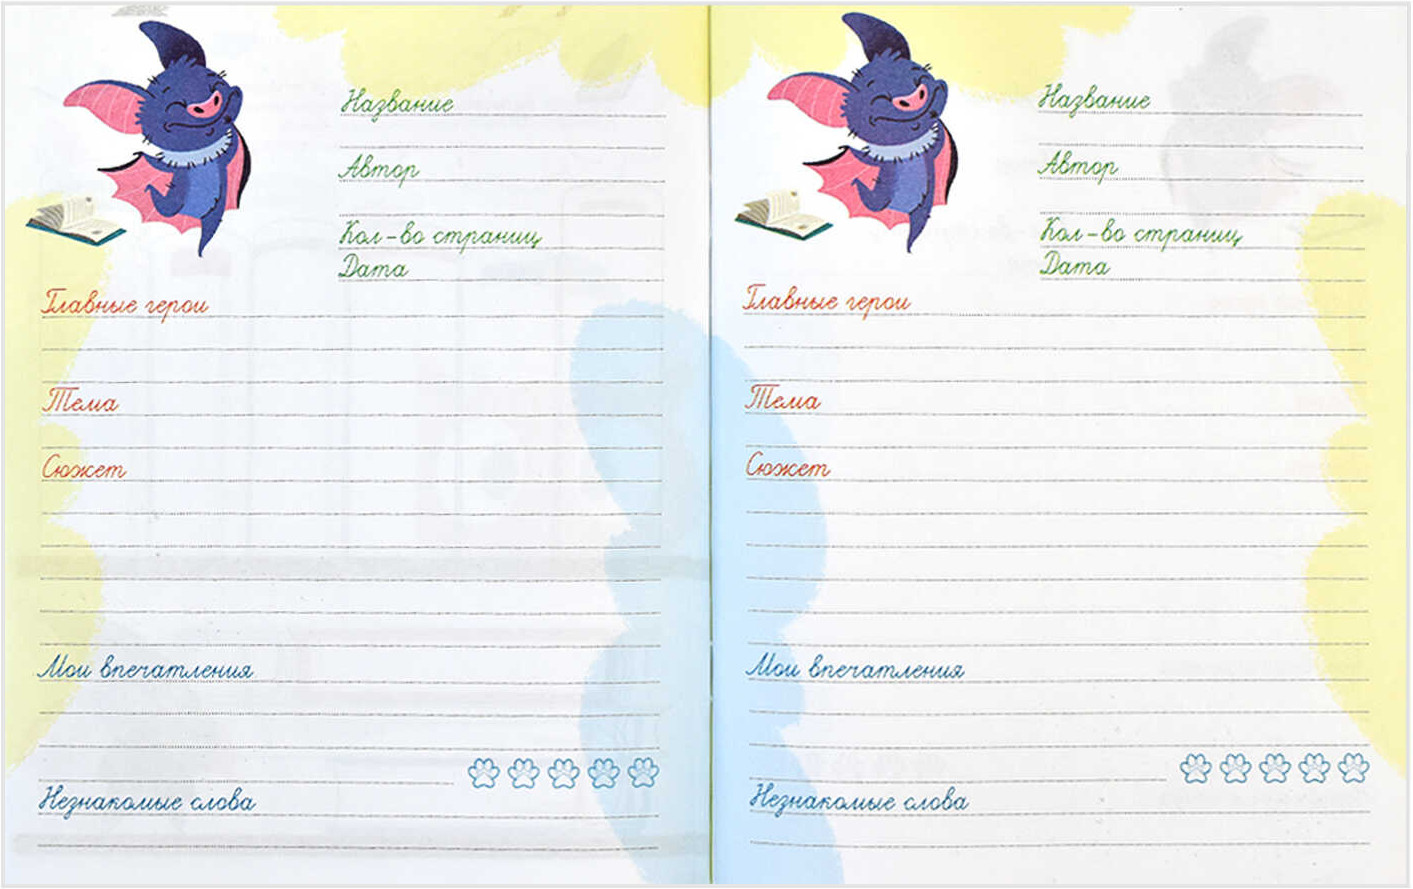 Название
Автор
Кол-во страниц
Дата
Главные герои
Тема
Сюжет
Мои впечатления
Незнакомые слова
Название
Автор
Кол-во страниц
Дата
Главные герои
Тема
Сюжет
Мои впечатления
Незнакомые слова